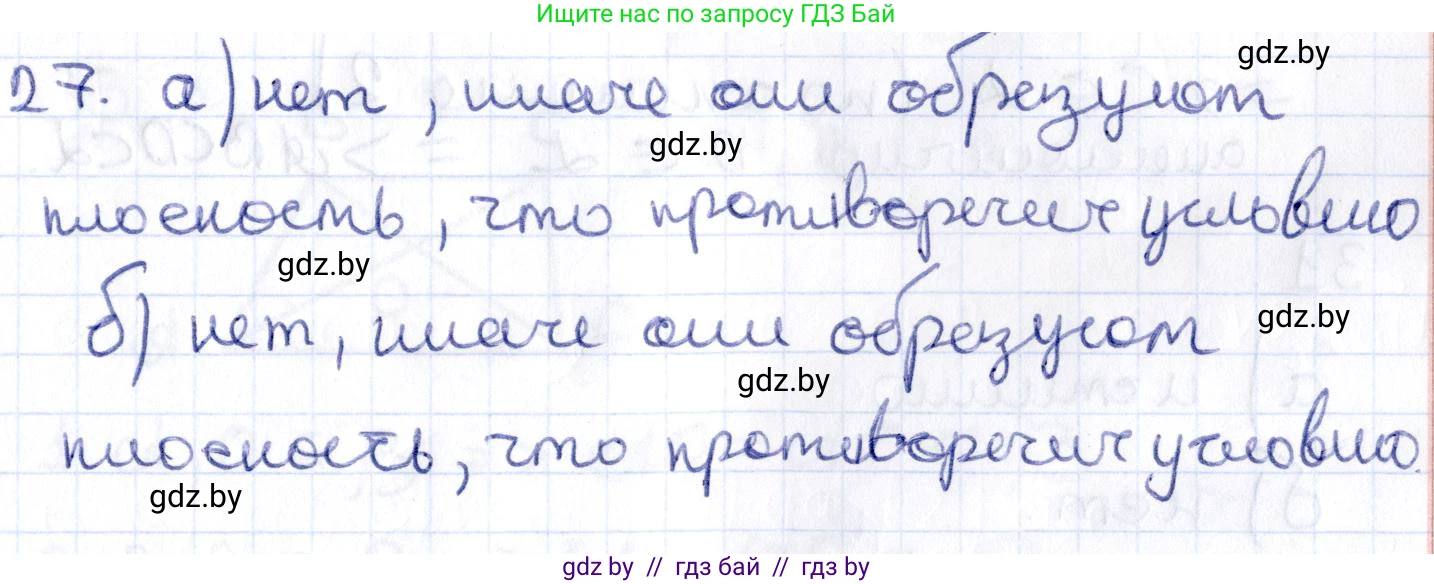 Ищите нас по запросу ГДЗ Бай
gdz.by
27. а) нет, иначе они образуют
gdz.by
плоскость, что противоречит условию
gdz.by
б) нет, иначе они образуют
gdz.by
gdz.by
плоскость, что противоречит условию.
gdz.by
gdz.by // гдз бай // гдз by